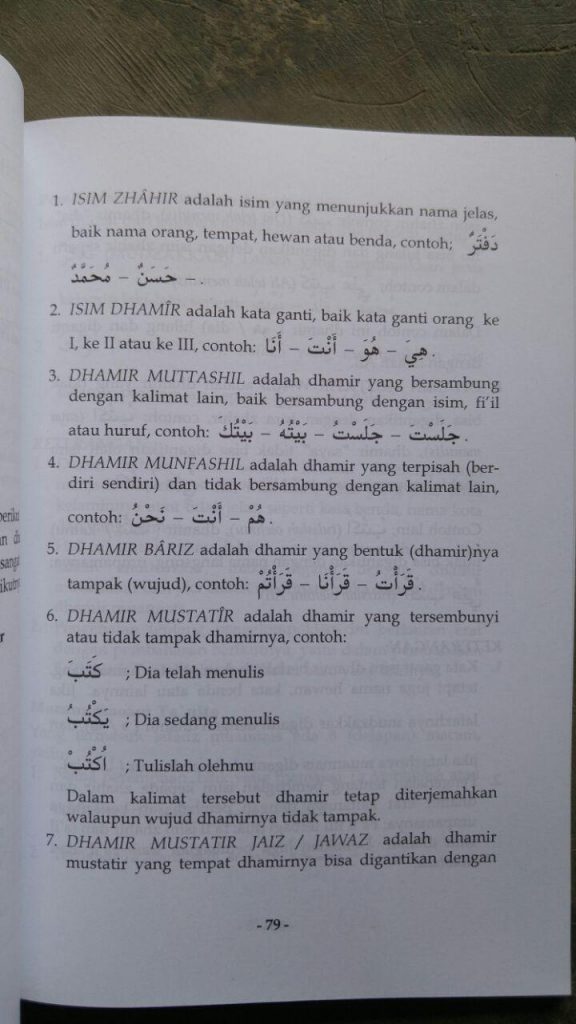 1. ISIM ZHÂHIR adalah isim yang menunjukkan nama jelas,
baik nama orang, tempat, hewan atau benda, contoh; دَفْتَرٌ
– حَسَنٌ – مُحَمَّدٌ.
2. ISIM DHAMÎR adalah kata ganti, baik kata ganti orang ke
I, ke II atau ke III, contoh: أَنَا – أَنْتَ – هُوَ – هِيَ.
3. DHAMIR MUTTASHIL adalah dhamir yang bersambung
dengan kalimat lain, baik bersambung dengan isim, fi'il
atau huruf, contoh: بَيْتُكَ – بَيْتُهُ – جَلَسْتُ – جَلَسْتَ.
4. DHAMIR MUNFASHIL adalah dhamir yang terpisah (ber-
diri sendiri) dan tidak bersambung dengan kalimat lain,
contoh: نَحْنُ – أَنْتَ – هُمْ.
5. DHAMIR BÂRIZ adalah dhamir yang bentuk (dhamir)nya
tampak (wujud), contoh: قَرَأْتُمْ – قَرَأْنَا – قَرَأْتُ.
6. DHAMIR MUSTATÎR adalah dhamir yang tersembunyi
atau tidak tampak dhamirnya, contoh:
كَتَبَ ; Dia telah menulis
يَكْتُبُ ; Dia sedang menulis
اُكْتُبْ ; Tulislah olehmu
Dalam kalimat tersebut dhamir tetap diterjemahkan
walaupun wujud dhamirnya tidak tampak.
7. DHAMIR MUSTATIR JAIZ / JAWAZ adalah dhamir
mustatir yang tempat dhamirnya bisa digantikan dengan
- 79 -